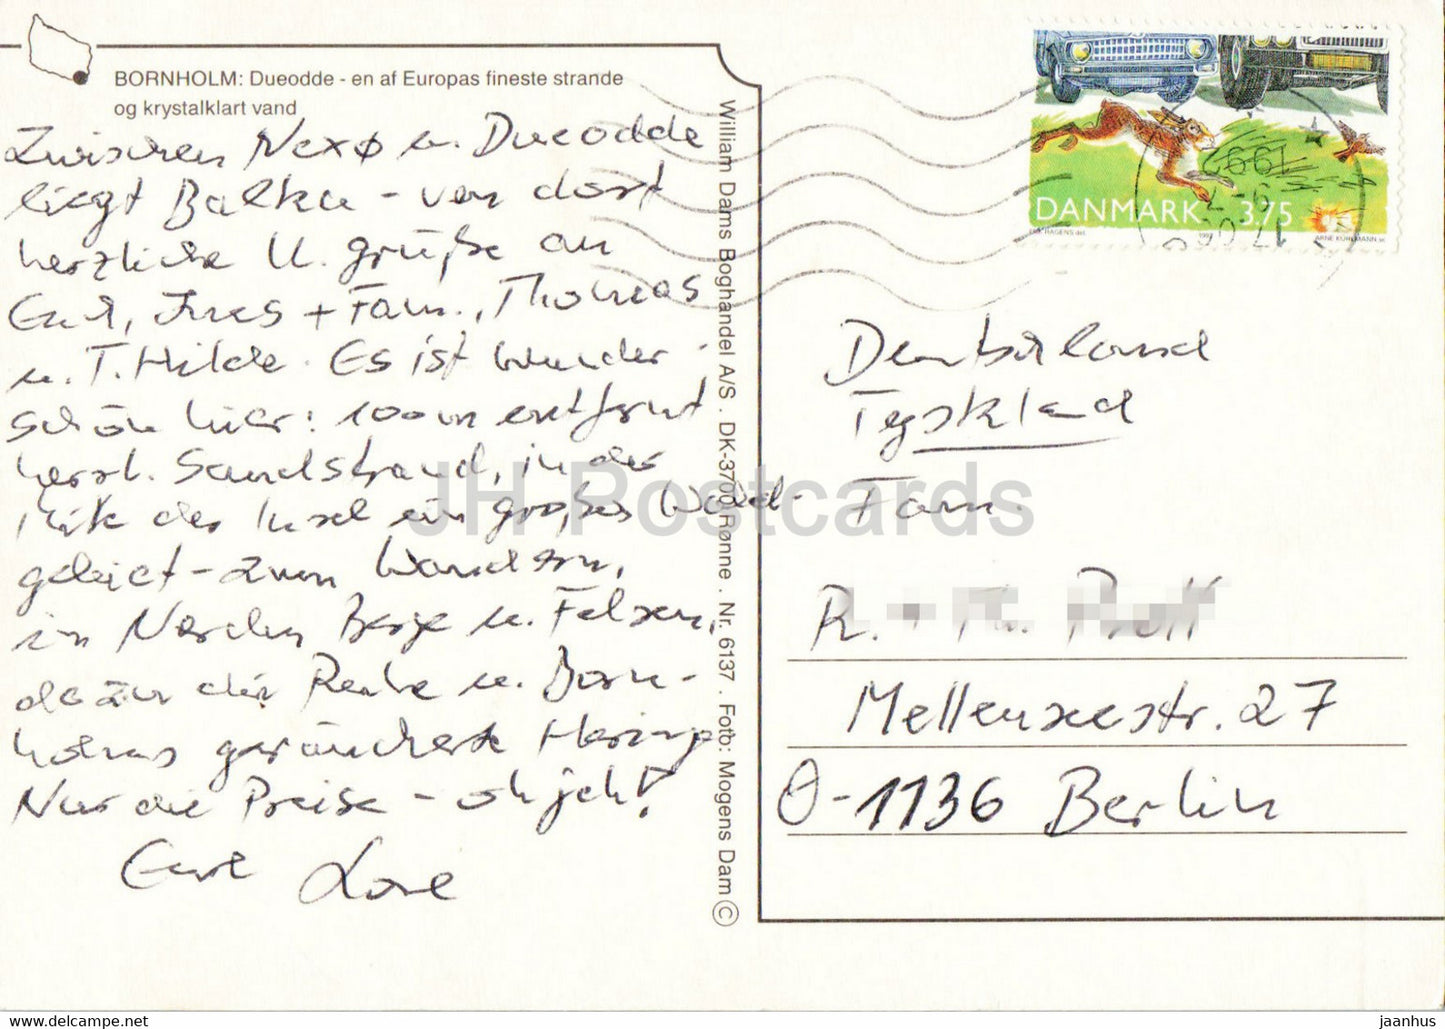 BORNHOLM: Dueodde - en af Europas fineste strande
og krystalklart vand
Zwischen Nexø u. Dueodde
liegt Balka - von dort
herzliche U. grüße an
Gert, Ines + Fam., Thomas
u. T. Hilde. Es ist wunder-
schön hier: 100m entfernt
herrl. Sandstrand, in der
Mitte der Insel ein großes Wald-
gebiet - zum Wandern,
im Norden Berge u. Felsen,
dazu die Ruhe u. Born-
holms geräucherte Heringe
Nur die Preise - oh jeh!
Eure Lore
William Dams Boghandel A/S . DK-3700 Rønne . Nr. 6137 . Foto: Mogens Dam ©
DANMARK 3.75
1992
ARNE KÜHLMANN sc.
Deutschland
Tyskland
Fam.
R. + Th.
Mellenseestr. 27
O-1136 Berlin
JH Postcards
https://www.hippostcard.com
jaanhus